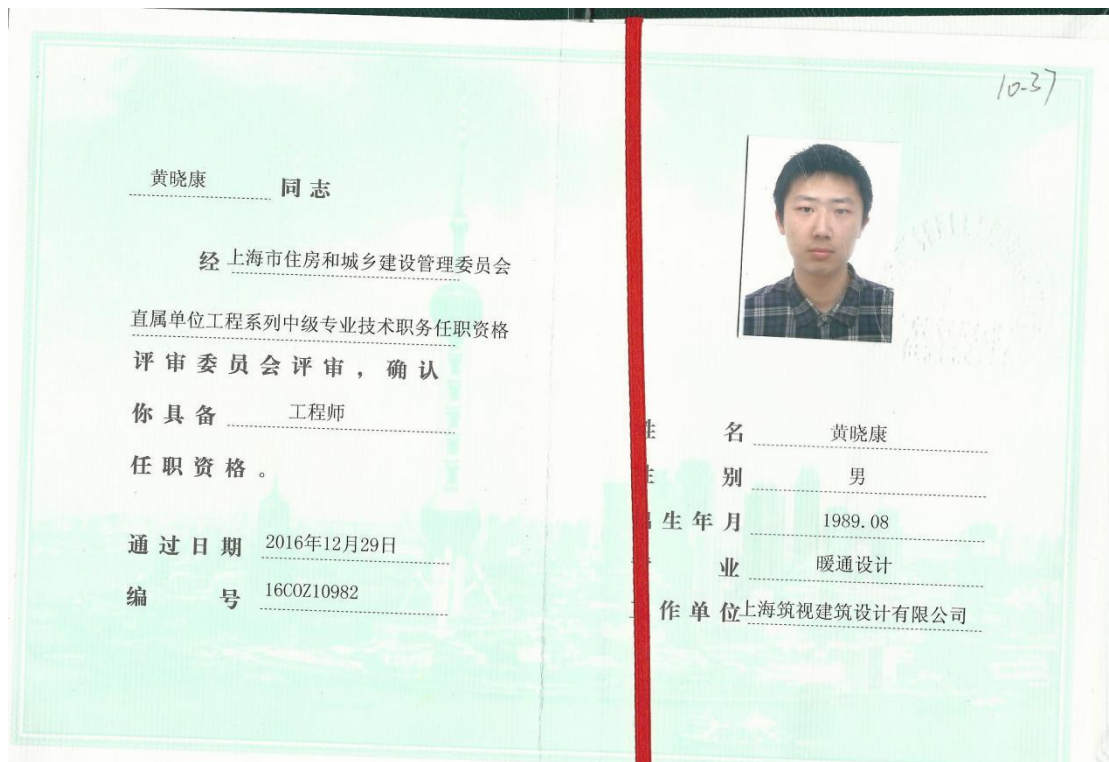 黄晓康 同志
经 上海市住房和城乡建设管理委员会
直属单位工程系列中级专业技术职务任职资格
评审委员会评审，确认
你具备 工程师
任职资格。
通过日期 2016年12月29日
编号 16C0Z10982
10-37
姓名 黄晓康
性别 男
出生年月 1989.08
业 暖通设计
工作单位 上海筑视建筑设计有限公司